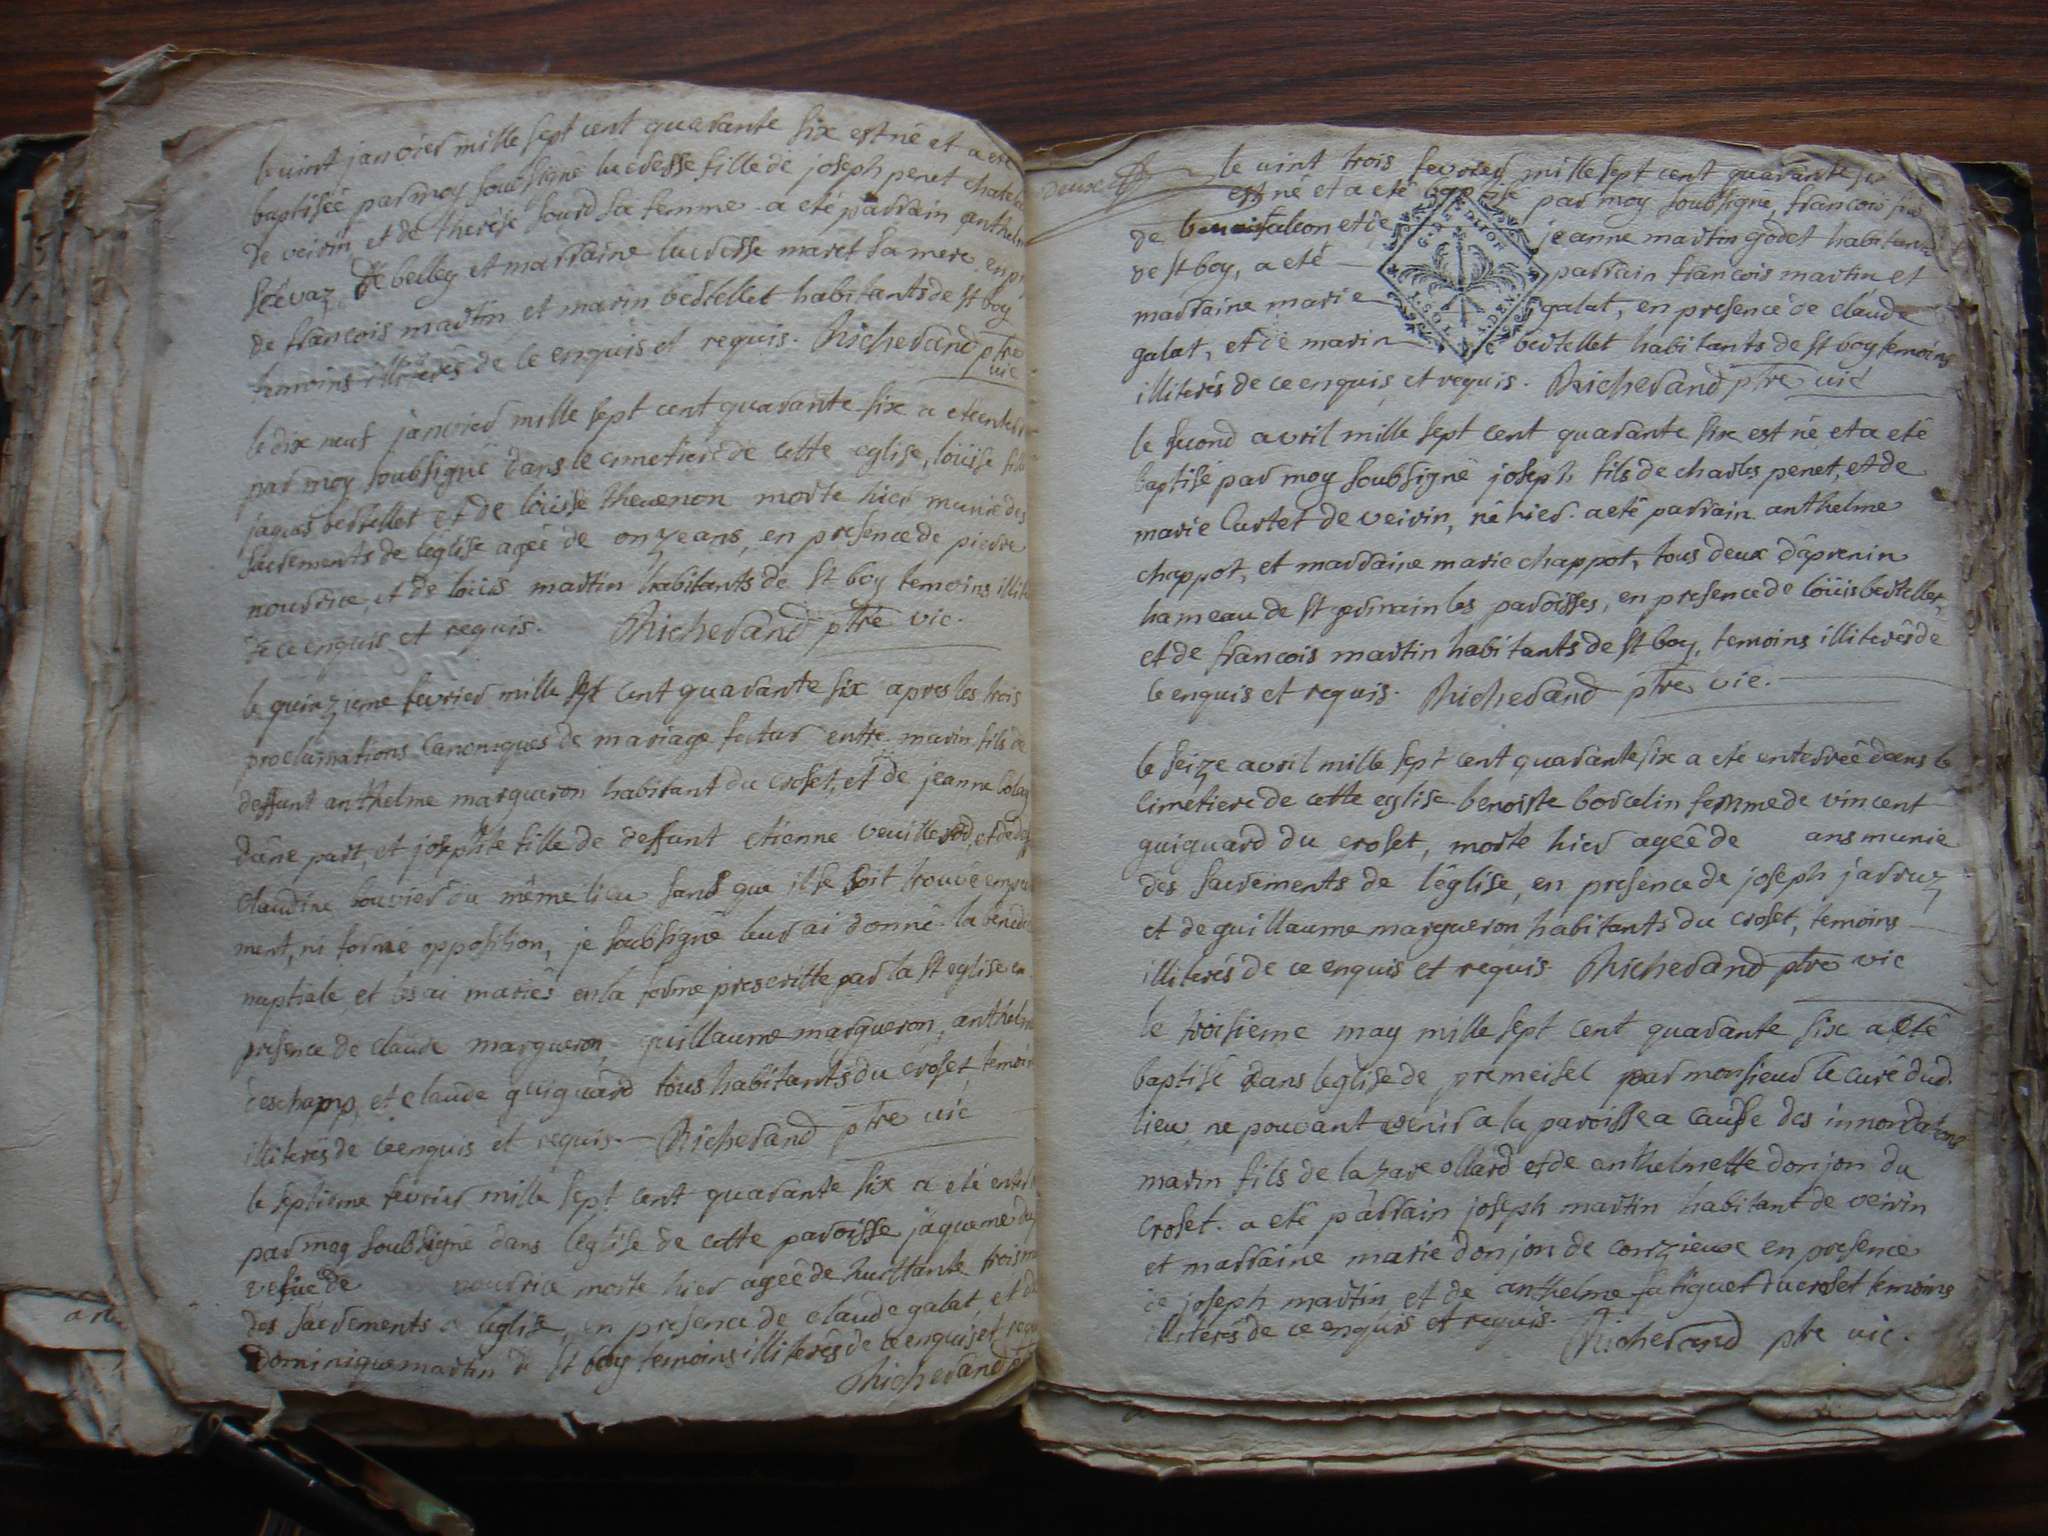 le vint janvier mille sept cent quarante six est né et a eté
baptisée par moy soubsigné lucresse fille de joseph penet
de veirin et de therese sourd sa femme. a eté parrain anthelme
de belley et marraine lucresse maret sa mere en
de francois martin et marin bertellet habitants de st boy
temoins illiterés de ce enquis et requis. Richerand ptre
vic
le dix neuf janvier mille sept cent quarante six a eté
par moy soubsigné dans le cimetiere de cette eglise, loüise
jaques bertellet et de loüise thevenon morte hier munie des
sacrements de léglise agée de onze ans, en presence de pierre
nourrice, et de loüis martin habitants de st boy temoins
de ce enquis et requis. Richerand ptre vic.
le quinzieme fevrier mille sept cent quarante six apres les trois
proclamations canoniques de mariage futur entre marin fils de
deffunt anthelme margueron habitant du croset, et de jeanne
dûne part, et josephte fille de deffunt etienne
claudine bouvier du même lieu sans que il se soit trouvé
ment, ni formé opposition, je soubsigné leur ai donné la
nuptiale, et les ai mariés en la forme prescritte par la st eglise en
presence de claude margueron, guillaume margueron, anthelme
deschamp, et claude guiguard tous habitants du croset, temoins
illiterés de ce enquis et requis. Richerand ptre vic
le septieme fevrier mille sept cent quarante six a eté
par moy soubsigné dans léglise de cette paroisse jaqueme
vefüe de nourrice morte hier agée de huittante trois
des sacrements léglise, en presence de claude galat, et de
dominique martin de st boy temoins illiterés de ce enquis et
Richerand
le vint trois fevrier mille sept cent quarante
est né et a eté baptisé par moy soubsigné, francois
de et de jeanne martin godet habitants
de st boy, a eté parrain francois martin et
marraine marie galat, en presence de claude
galat, et de marin bertellet habitants de st boy temoins
illiterés de ce enquis, et requis. Richerand ptre vic
le second avril mille sept cent quarante six est né et a eté
baptisé par moy soubsigné joseph fils de charles penet, et de
marie Curtet de veirin, né hier. a eté parrain anthelme
chappot, et marraine marie chappot, tous deux
hameau de st germain les paroisses, en presence de loüis bertellet,
et de francois martin habitants de st boy, temoins illiterés de
ce enquis et requis. Richerand ptre vic.
le seize avril mille sept cent quarante six a eté enterrée dans le
cimetiere de cette eglise benoiste borcelin femme de vincent
guiguard du croset, morte hier agée de ans munie
des sacrements de léglise, en presence de joseph jarruz
et de guillaume margueron habitants du croset, temoins
illiterés de ce enquis et requis. Richerand ptre vic
le troisieme may mille sept cent quarante six a eté
baptisé dans léglise de premeisel par monsieur le curé dud.
lieu, ne pouvant venir a la paroisse a causse des
marin fils de lazare ollard et de anthelmette donjon du
croset. a eté parrain joseph martin habitant de veirin
et marraine marie donjon de conzieux en presence
de joseph martin et de anthelme fatiguet du croset temoins
illiterés de ce enquis et requis.
Richerand ptre vic.